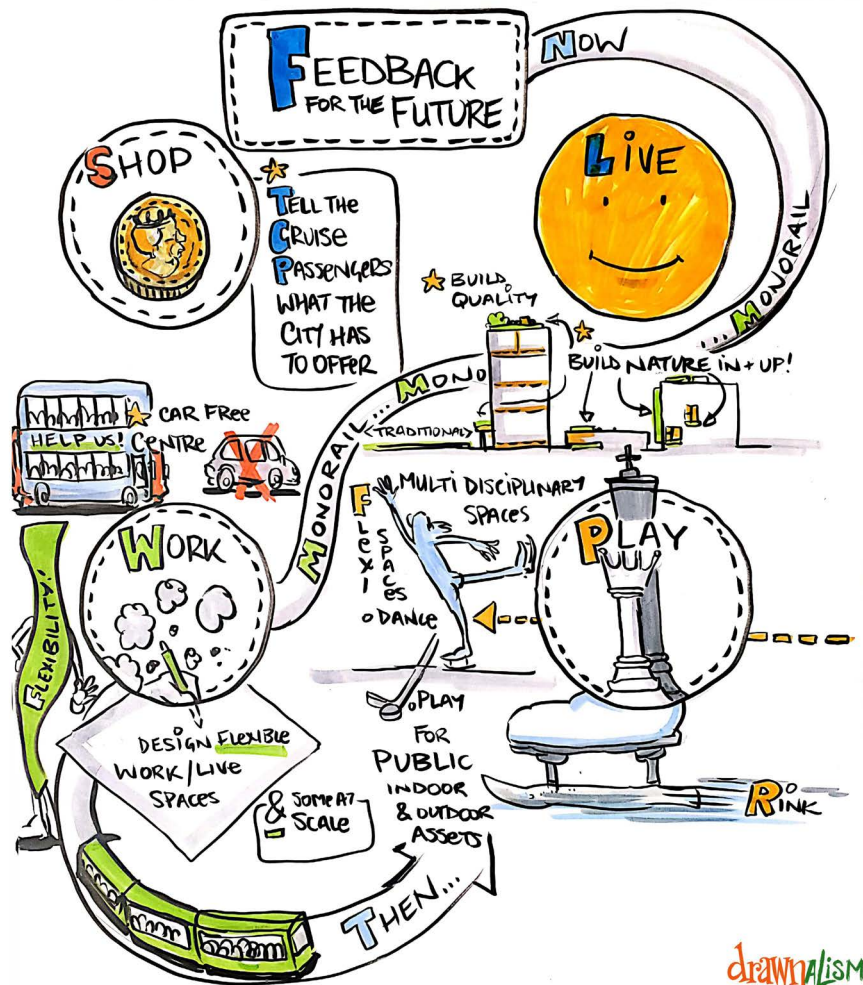 FEEDBACK
FOR THE FUTURE
NOW
SHOP
TELL THE
CRUISE
PASSENGERS
WHAT THE
CITY HAS
TO OFFER
LIVE
...MONORAIL
BUILD
QUALITY
BUILD NATURE IN + UP!
<TRADITIONAL>
MONORAIL...MONO
CAR FREE
CENTRE
HELP US!
WORK
FLEXIBILITY!
DESIGN FLEXIBLE
WORK/LIVE
SPACES
& SOME AT
SCALE
MULTI DISCIPLINARY
SPACES
FLEXI
SPACES
DANCE
PLAY
PLAY
FOR
PUBLIC
INDOOR
& OUTDOOR
ASSETS
RINK
THEN...
drawnalism